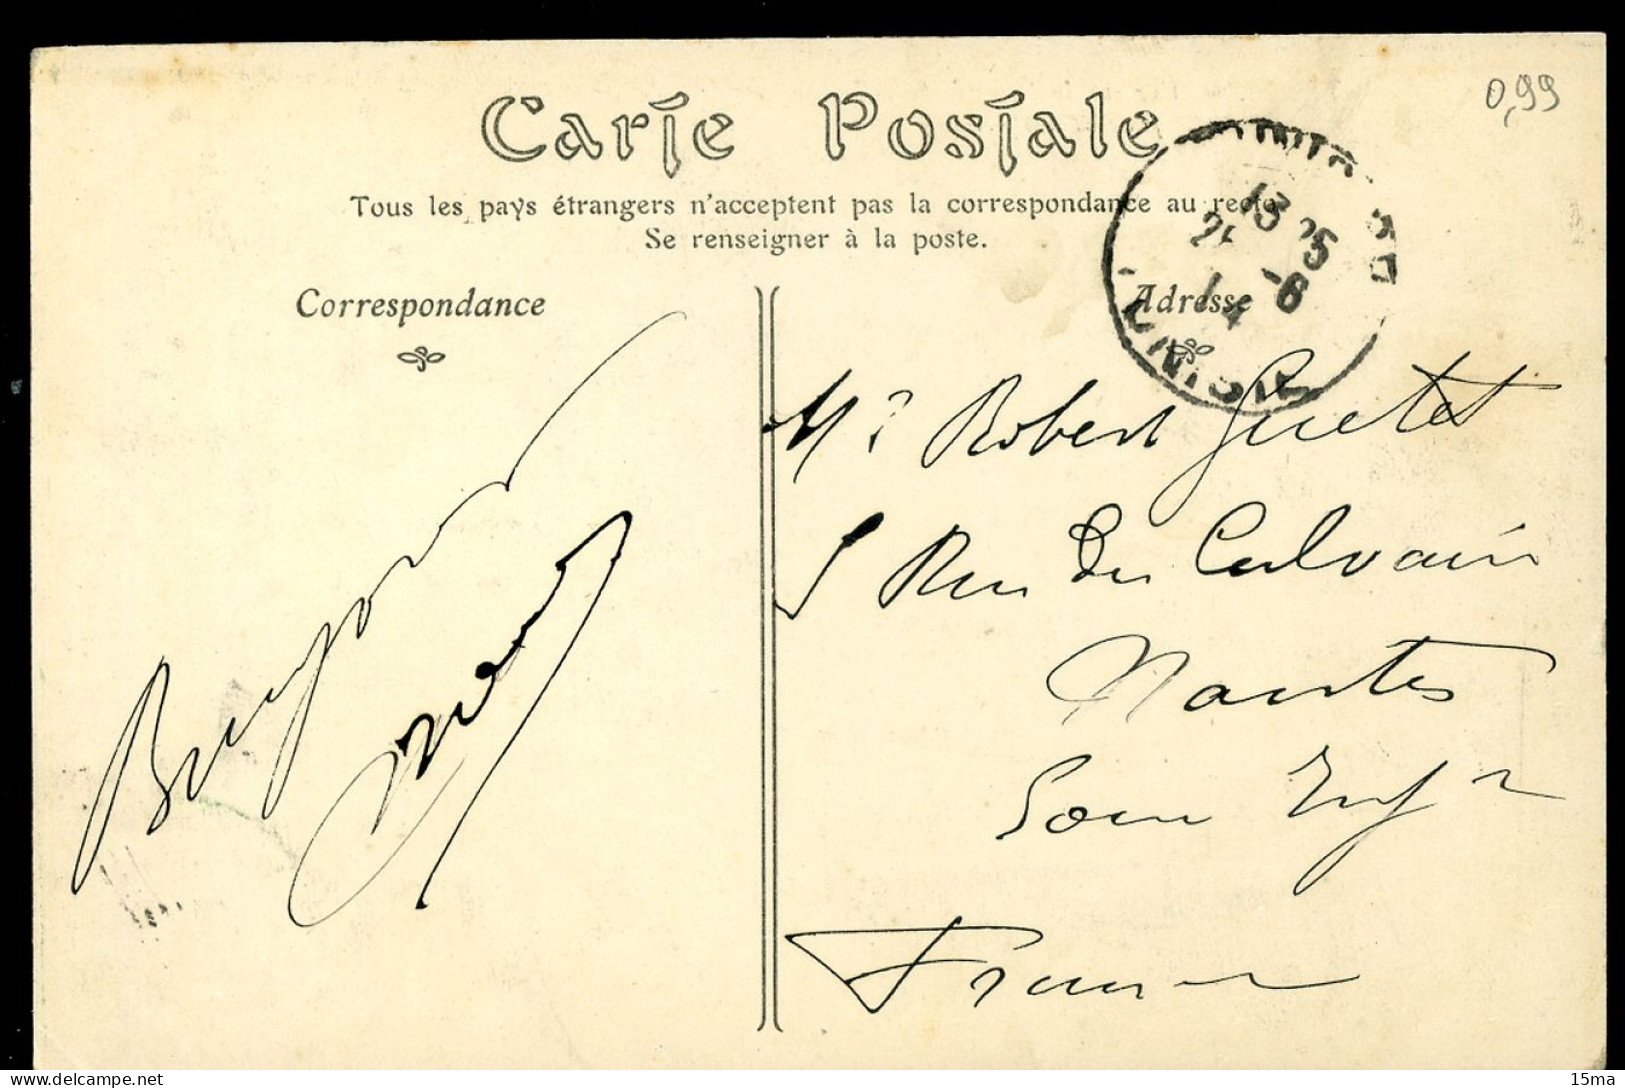 Carte Postale
0,99
Tous les pays étrangers n'acceptent pas la correspondance au recto.
Se renseigner à la poste.
Correspondance
Adresse
13 25
2 -6
14
TUNISIE
Mr Robert Guetet
5 Rue du Calvaire
Nantes
Loire Infre
France
delcampe.net
15ma